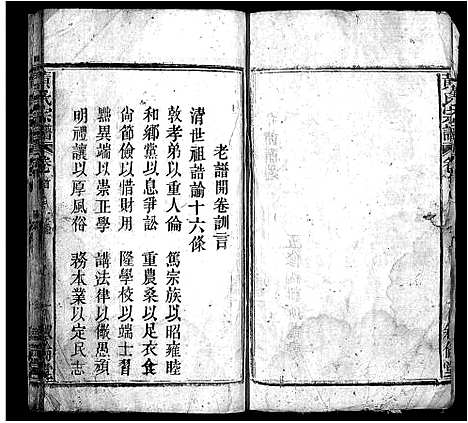 老譜開卷訓言
清世祖誥諭十六條
敦孝弟以重人倫 篤宗族以昭雍睦
和鄉黨以息爭訟 重農桑以足衣食
尚節儉以惜財用 隆學校以端士習
黜異端以崇正學 講法律以儆愚頑
明禮讓以厚風俗 務本業以定民志
黃氏宗譜